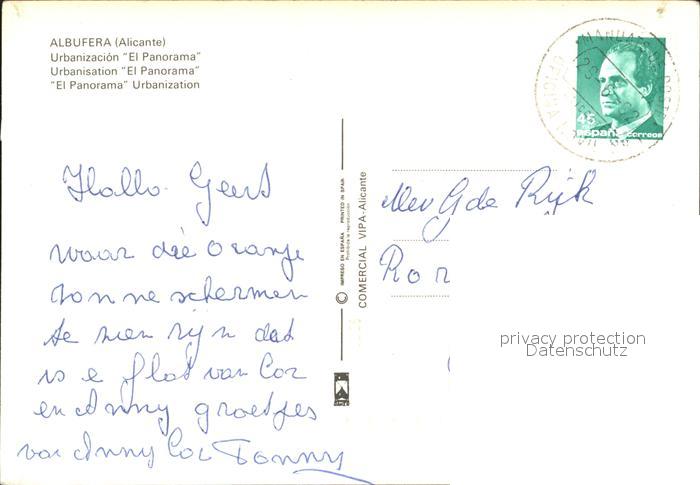 ALBUFERA (Alicante)
Urbanización "El Panorama"
Urbanisation "El Panorama"
"El Panorama" Urbanization
45
españa correos
Hallo Geert
waar die oranje
zonne schermen
te zien zijn dat
is e flat van Cor
en Anny groetjes
van Anny Cor Tonny
© IMPRESO EN ESPAÑA PRINTED IN SPAIN
Prohibida la reproducción
COMERCIAL VIPA-Alicante
Mev G de Rijk
privacy protection
Datenschutz